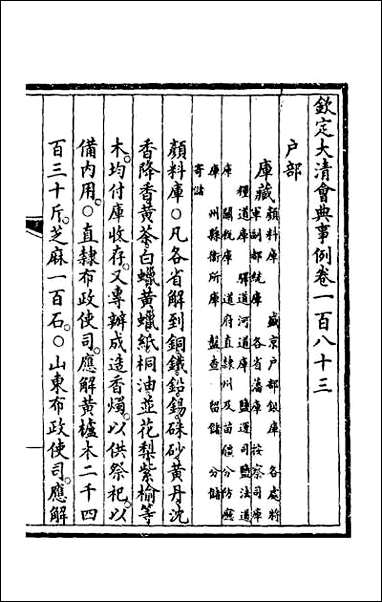 欽定大清會典事例卷一百八十三
戶部
庫藏
顏料庫 盛京戶部銀庫 各處將
軍副都統庫 各省藩庫 按察司庫
糧道庫 驛道河道庫 鹽運司鹽法道
庫 關稅庫 道府直隸州及苗疆分防廳
庫 州縣衛所庫 盤查 留儲 分儲
寄儲
顏料庫○凡各省解到銅鐵鉛錫硃砂黃丹沈
香降香黃茶白蠟黃蠟紙桐油並花梨紫榆等
木均付庫收存又專辦成造香燭以供祭祀以
備內用○直隸布政使司應解黃櫨木二千四
百三十斤芝麻一百石○山東布政使司應解